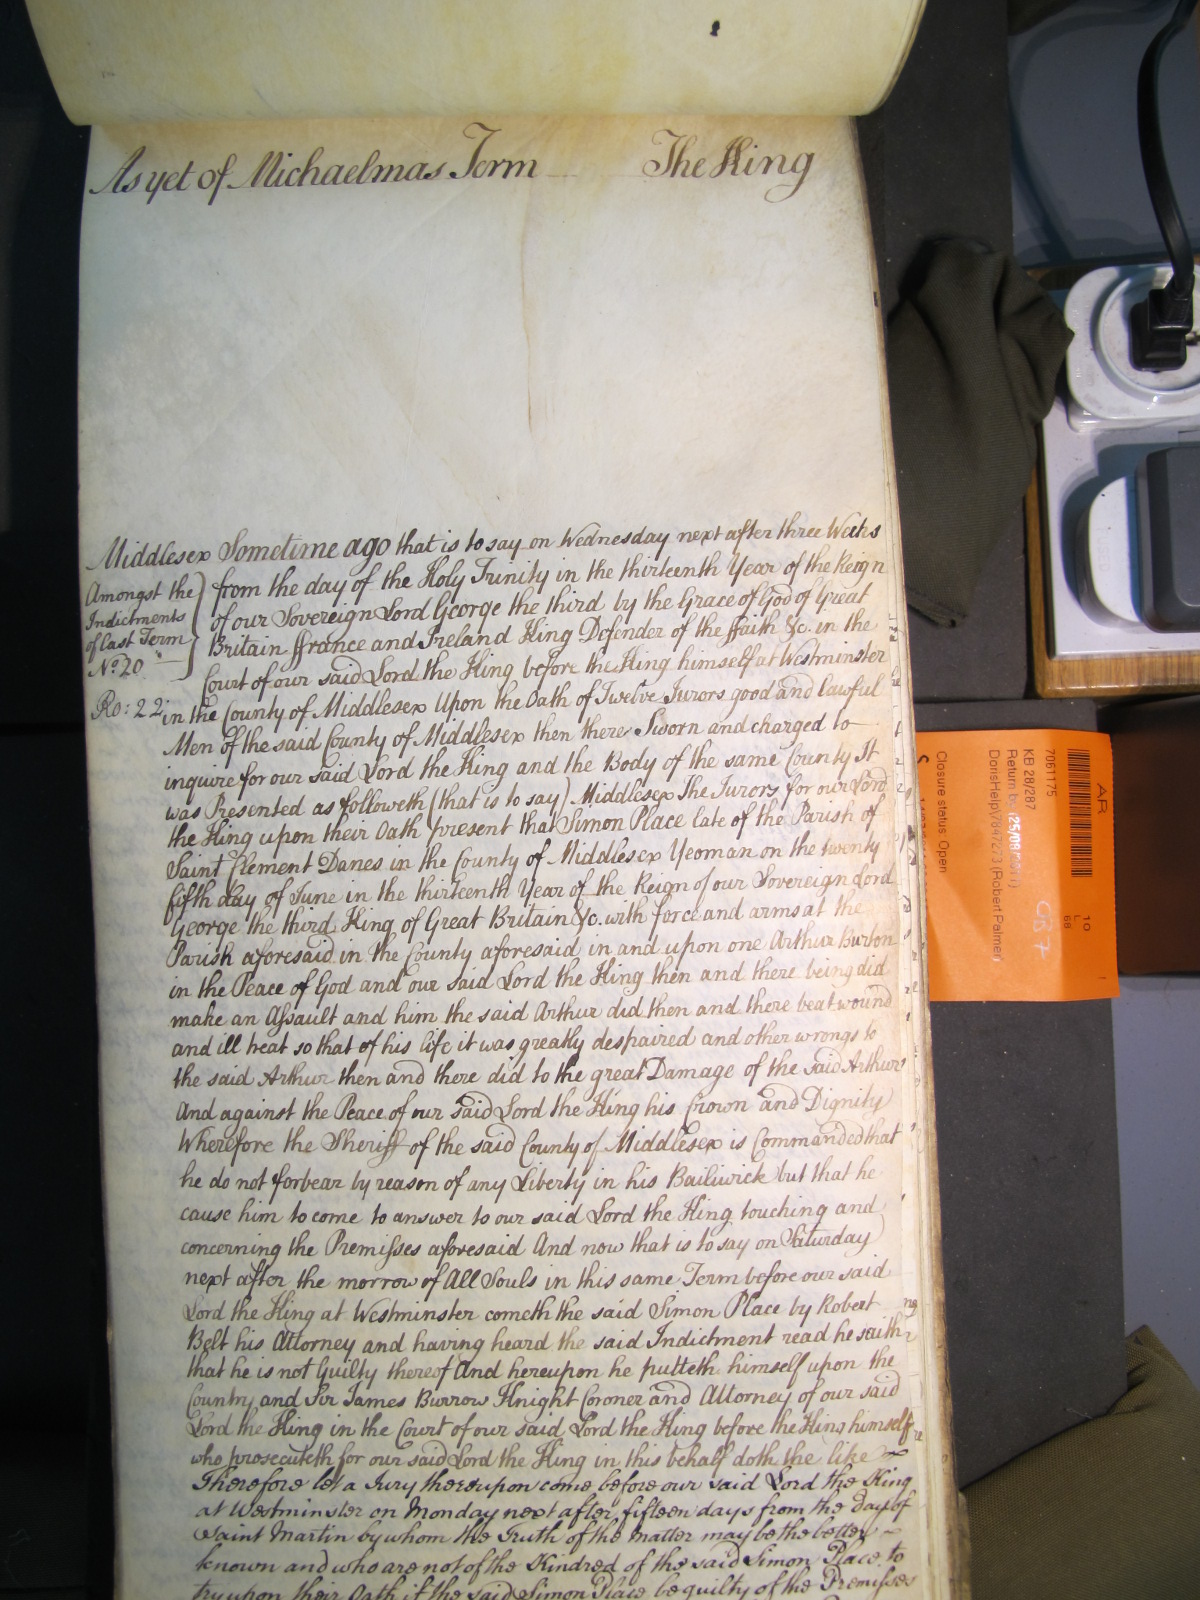 As yet of Michaelmas Term The King
Middlesex Sometime ago that is to say on Wednesday next after three Weeks
Amongst the
Indictments
of last Term
No. 20
Ro: 22
from the day of the Holy Trinity in the thirteenth Year of the Reign
of our Sovereign Lord George the third by the Grace of God of Great
Britain ffrance and Ireland King Defender of the ffaith &c. in the
Court of our said Lord the King before the King himself at Westminster
in the County of Middlesex Upon the Oath of Twelve Jurors good and lawful
Men of the said County of Middlesex then there Sworn and charged to
inquire for our said Lord the King and the Body of the same County It
was Presented as followeth (that is to say) Middlesex The Jurors for our Lord
the King upon their Oath present that Simon Place late of the Parish of
Saint Clement Danes in the County of Middlesex Yeoman on the twenty
fifth day of June in the thirteenth Year of the Reign of our Sovereign Lord
George the third King of Great Britain &c. with force and arms at the
Parish aforesaid in the County aforesaid in and upon one Arthur Burton
in the Peace of God and our said Lord the King then and there being did
make an Assault and him the said Arthur did then and there beat wound
and ill treat so that of his life it was greatly despaired and other wrongs to
the said Arthur then and there did to the great Damage of the said Arthur
And against the Peace of our said Lord the King his Crown and Dignity
Wherefore the Sheriff of the said County of Middlesex is Commanded that
he do not forbear by reason of any Liberty in his Bailiwick but that he
cause him to come to answer to our said Lord the King touching and
concerning the Premisses aforesaid And now that is to say on Saturday
next after the morrow of All Souls in this same Term before our said
Lord the King at Westminster cometh the said Simon Place by Robert
Belt his Attorney and having heard the said Indictment read he saith
that he is not Guilty thereof And hereupon he putteth himself upon the
Country and Sir James Burrow Knight Coroner and Attorney of our said
Lord the King in the Court of our said Lord the King before the King himself
who prosecuteth for our said Lord the King in this behalf doth the like
Therefore let a Jury thereupon come before our said Lord the King
at Westminster on Monday next after fifteen days from the day of
Saint Martin by whom the Truth of the matter may be the better
known and who are not of the Kindred of the said Simon Place to
try upon their Oath if the said Simon Place be guilty of the Premisses
AR
7061175
KB 28/287
Return by
DorisHelp\7847273 (Robert Palmer)
Closure status: Open